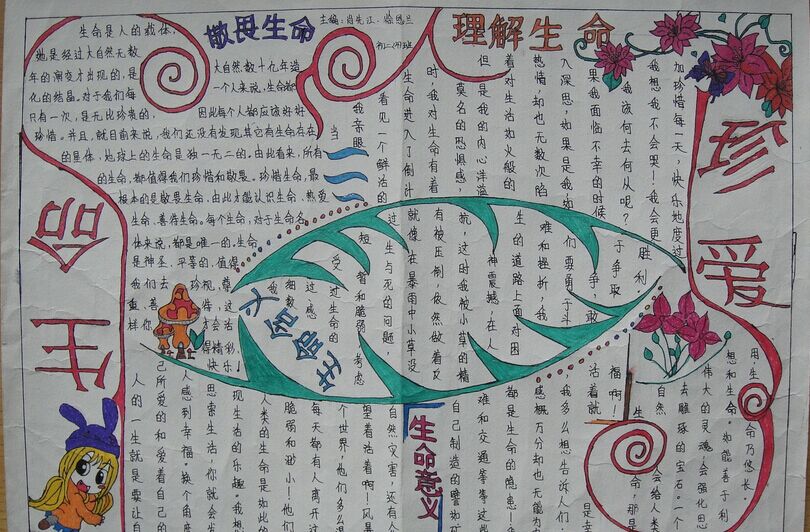 珍爱
生命
敬畏生命
理解生命
生命是人的载体，
她是经过大自然无数
年的演变才出现的，是
化的结晶。对于我们每
只有一次，是无比珍贵的，
珍惜。并且，就目前来说，我们还没有发现其它有生命存在
的星体，地球上的生命是独一无二的。由此看来，所有
的生命，都值得我们珍惜和敬畏。珍惜生命，最
根本的是敬畏生命，由此才能认识生命、热爱
生命、善待生命。每个生命，对于生命名
体来说，都是唯一的。生命
是神圣、平等的，值得
我们去 珍视、尊
重、善
大自然数十亿年造
一个人来说，生命都
因此每个人都应该好好
加珍惜每一天，快乐地度过
我想我不会哭！我会更
我该何去何从呢？
果我面临不幸的时候
入深思，如果是我如
热情，却也无数次陷
着对生活如火般的
但是我的内心洋溢
莫名的恐惧感，
时，我对生命有着
生命进入了倒计
看见一个鲜活的
我亲眼
当
胜利
于争取
争，敢
们要勇于斗
难和挫折，我
生的道路上面对困
神震撼，在人
我，这时我被小草的精
有被压倒，依然做着反
就像在暴雨中小草没
过生与死的问题，
短暂和脆弱 考虑
受过生命的
过感
我 细数
生命含义
生命意义
福啊！
活着就
我多么想告诉人们
感概万分却也无能为
都是生命的隐患！
难和交通等等这些
自己制造的譬如矿
自然灾害，还有人
望着活着啊！风暴
个世界。他们多么渴
每天都有人离开这
脆弱和渺小！他们
人类的生命是如此的
现生活的乐趣。我想
思索生活，你就会发
人感到幸福。换个角度
己所爱的和爱着自己的
人的一生就是要让自
用生命
想和生命。如能善于利
生命乃悠长。
伟大的灵魂，会强化思
去雕琢的宝石。一个
自然
会给人类
生命，那是